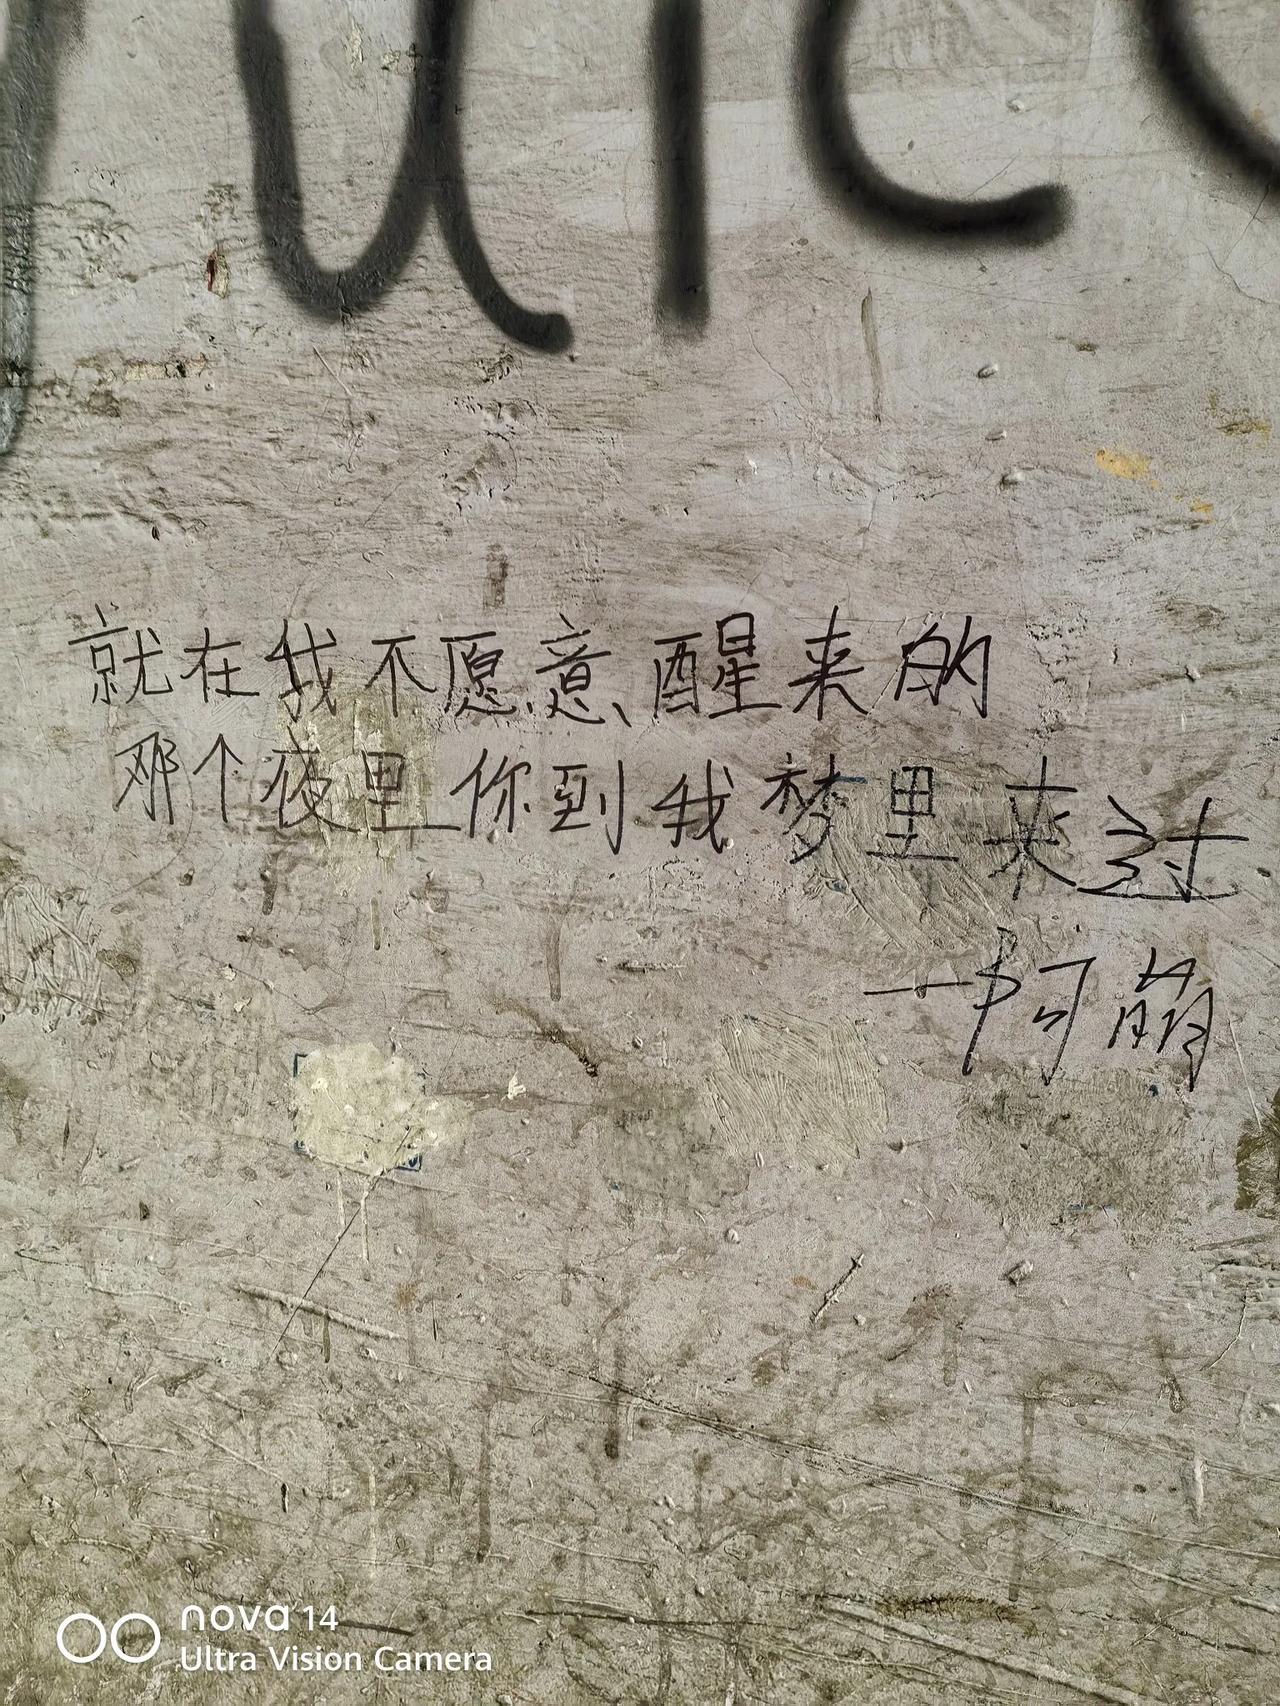 就在我不愿意醒来的
那个夜里你到我梦里来过
—阿崩
nova 14
Ultra Vision Camera